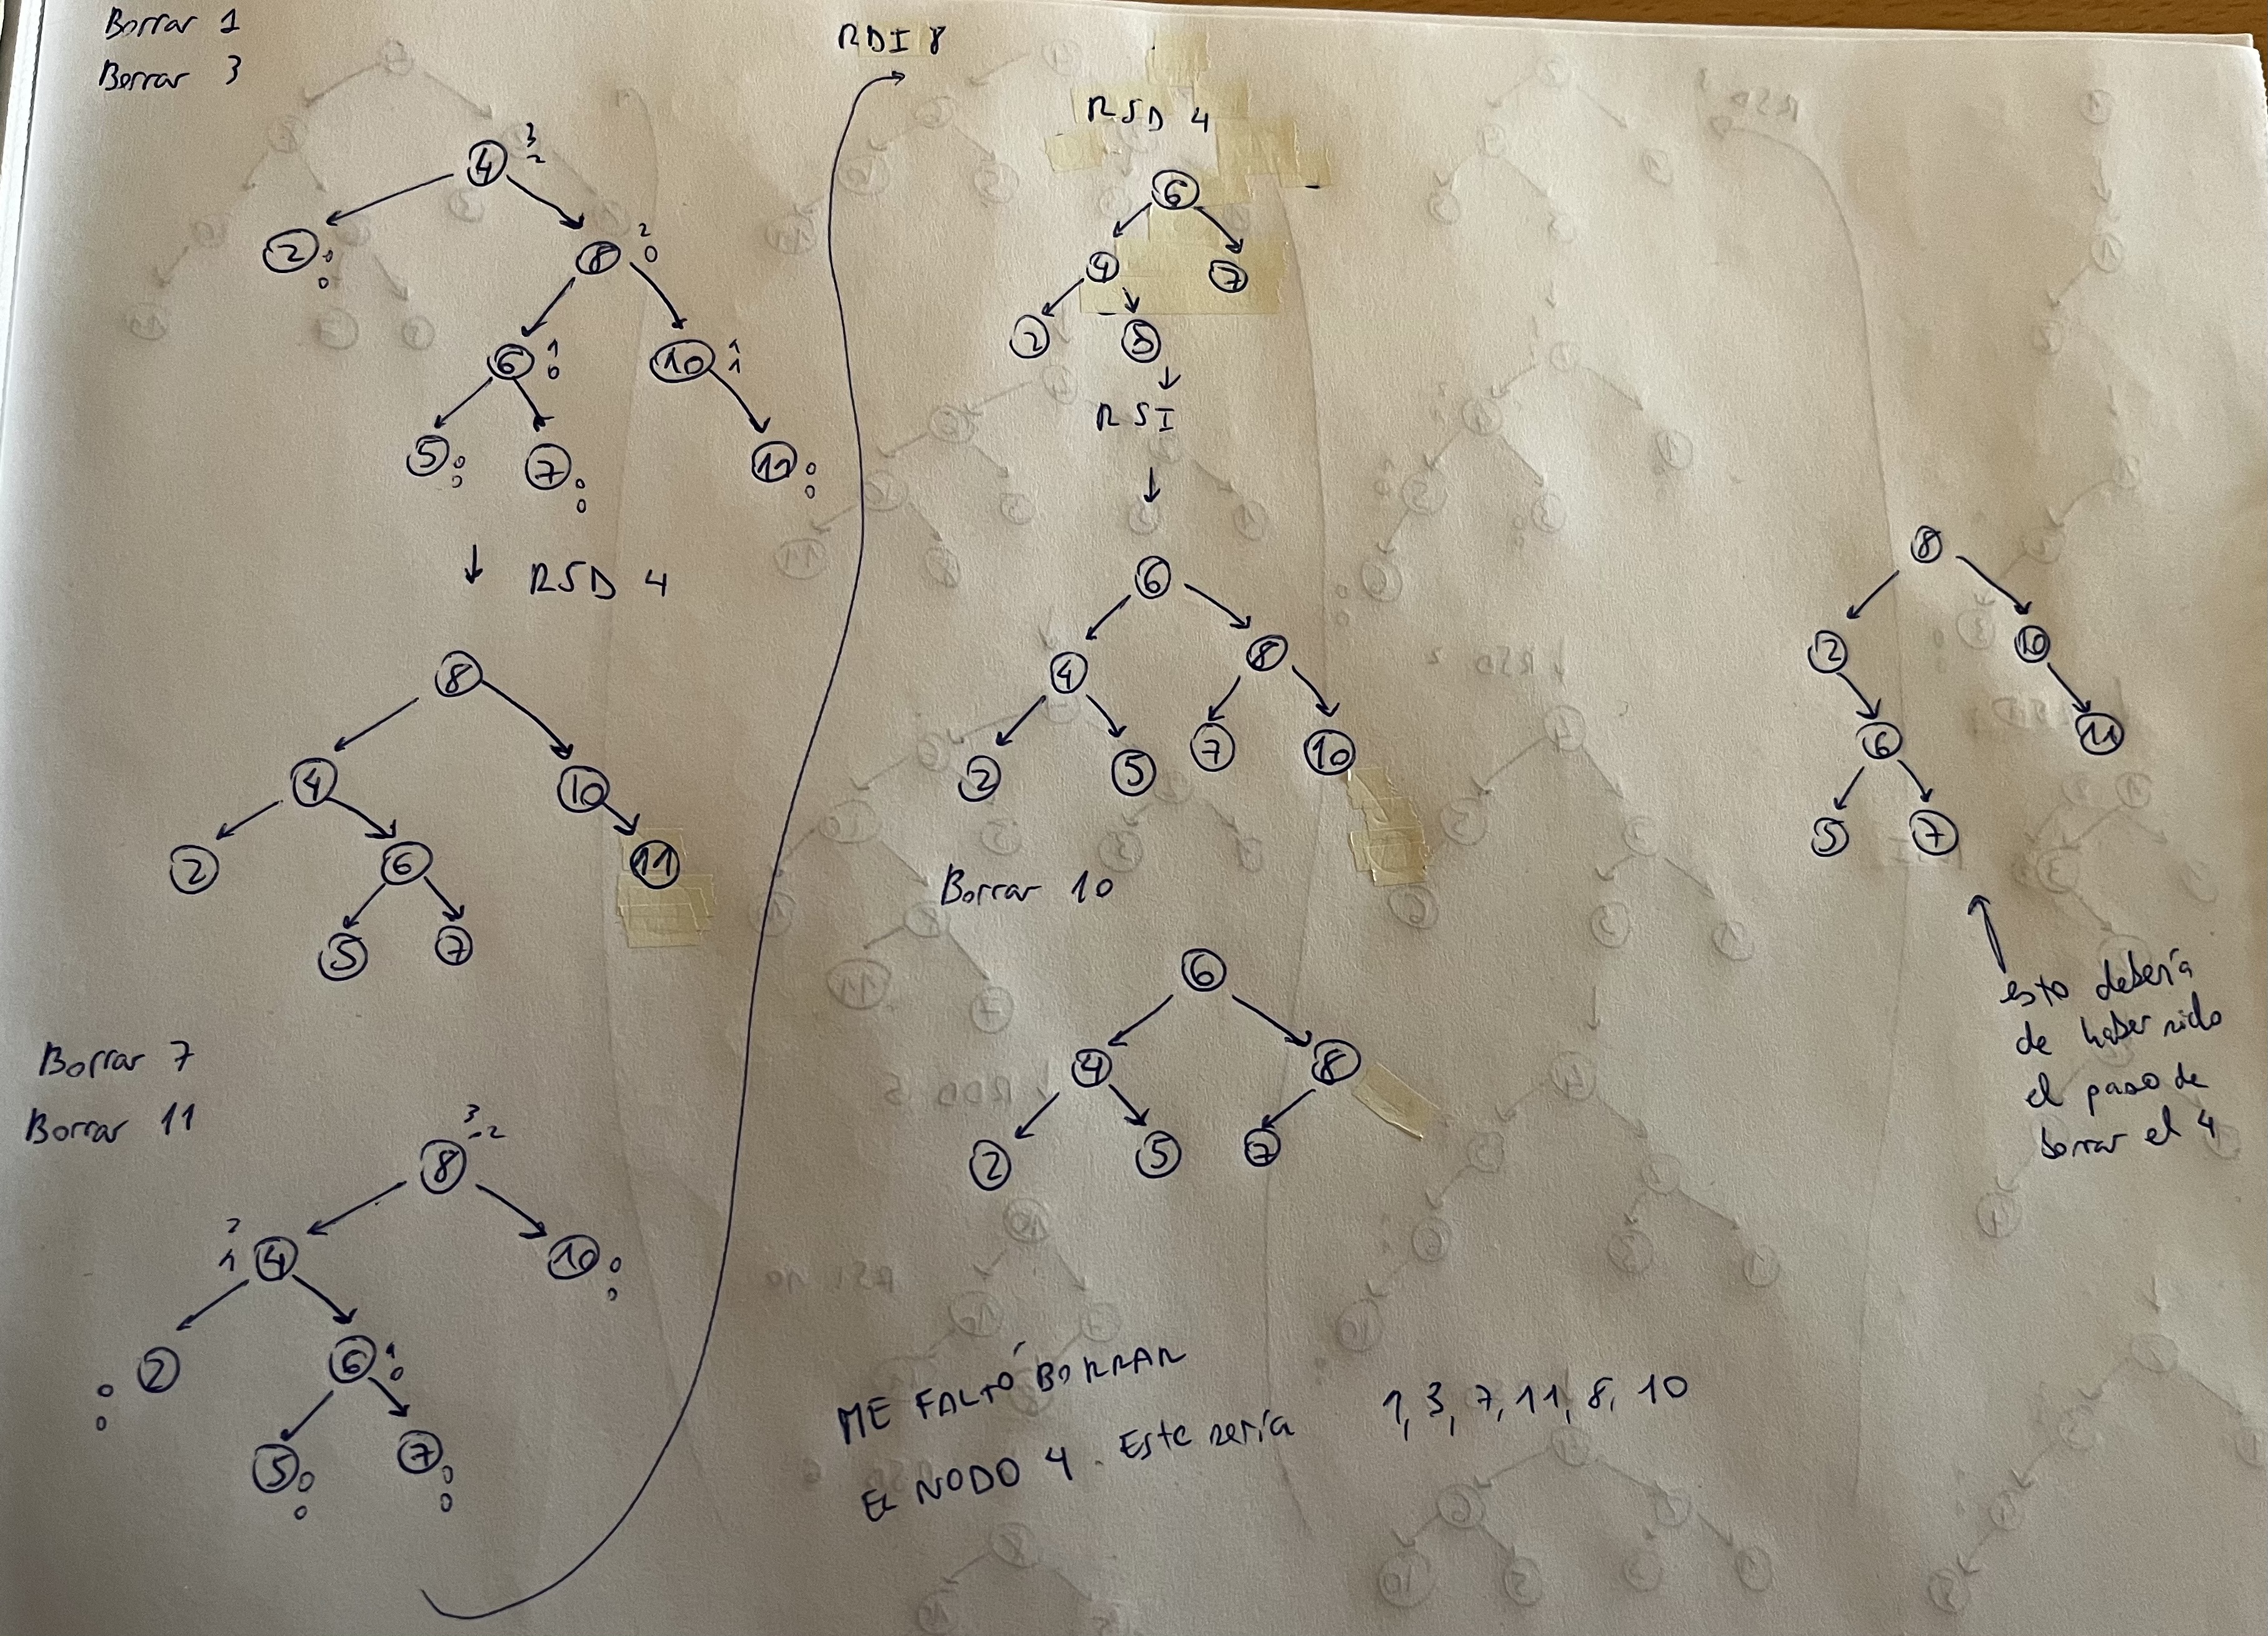 Borrar 1
Borrar 3
4 3 2
2 0 0
8 2 0
6 1 0
10 1 1
5 0 0
7 0 0
11 0 0
↓ RSD 4
8
4 10
2 6 11
5 7
Borrar 7
Borrar 11
8 3 -2
2 1 4
10 0 0
0 0 2
6 1 0
5 0 0
7 0 0
RDI 8
RSD 4
6
4 7
2 5
↓
RSI
↓
6
4 8
2 5 7 10
Borrar 10
6
4 8
2 5 7
ME FALTÓ BORRAR
EL NODO 4. Este sería 1, 3, 7, 11, 8, 10
8
2 10
6 11
5 7
esto debería
de haber sido
el paso de
borrar el 4